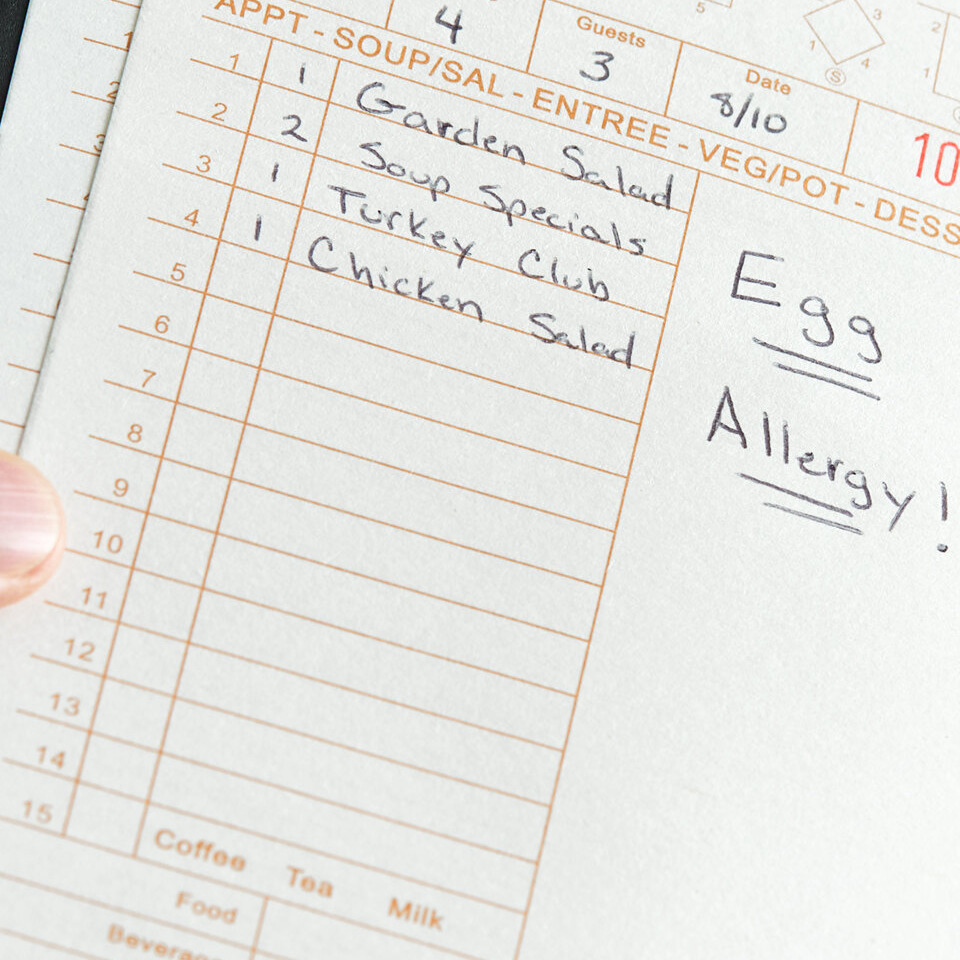 4
Guests
3
Date
8/10
10
5
1
3
4
S
2
1
APPT - SOUP/SAL - ENTREE - VEG/POT - DESS
1 1 Garden Salad
2 2 Soup Specials
3 1 Turkey Club
4 1 Chicken Salad
5
6
7
8
9
10
11
12
13
14
15
Egg
Allergy!
Coffee Tea Milk
Food